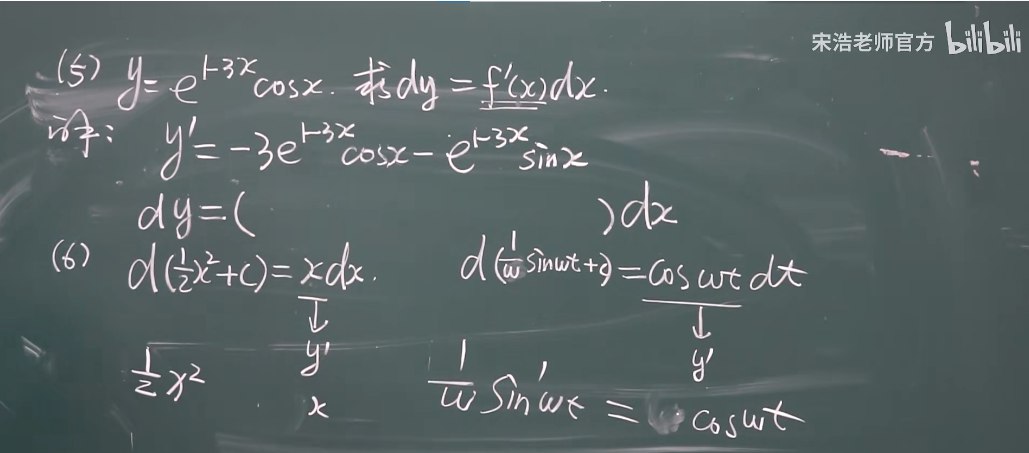 宋浩老师官方 bilibili
(5) y=e^{1-3x}cosx. 求dy=f'(x)dx.
解: y'=-3e^{1-3x}cosx-e^{1-3x}sinx
dy=( )dx
(6) d(\frac{1}{2}x²+c)=xdx. d(\frac{1}{w}sinwt+c)=coswt dt
↓ ↓
y' y'
\frac{1}{2}x² x \frac{1}{w}sin'wt = coswt